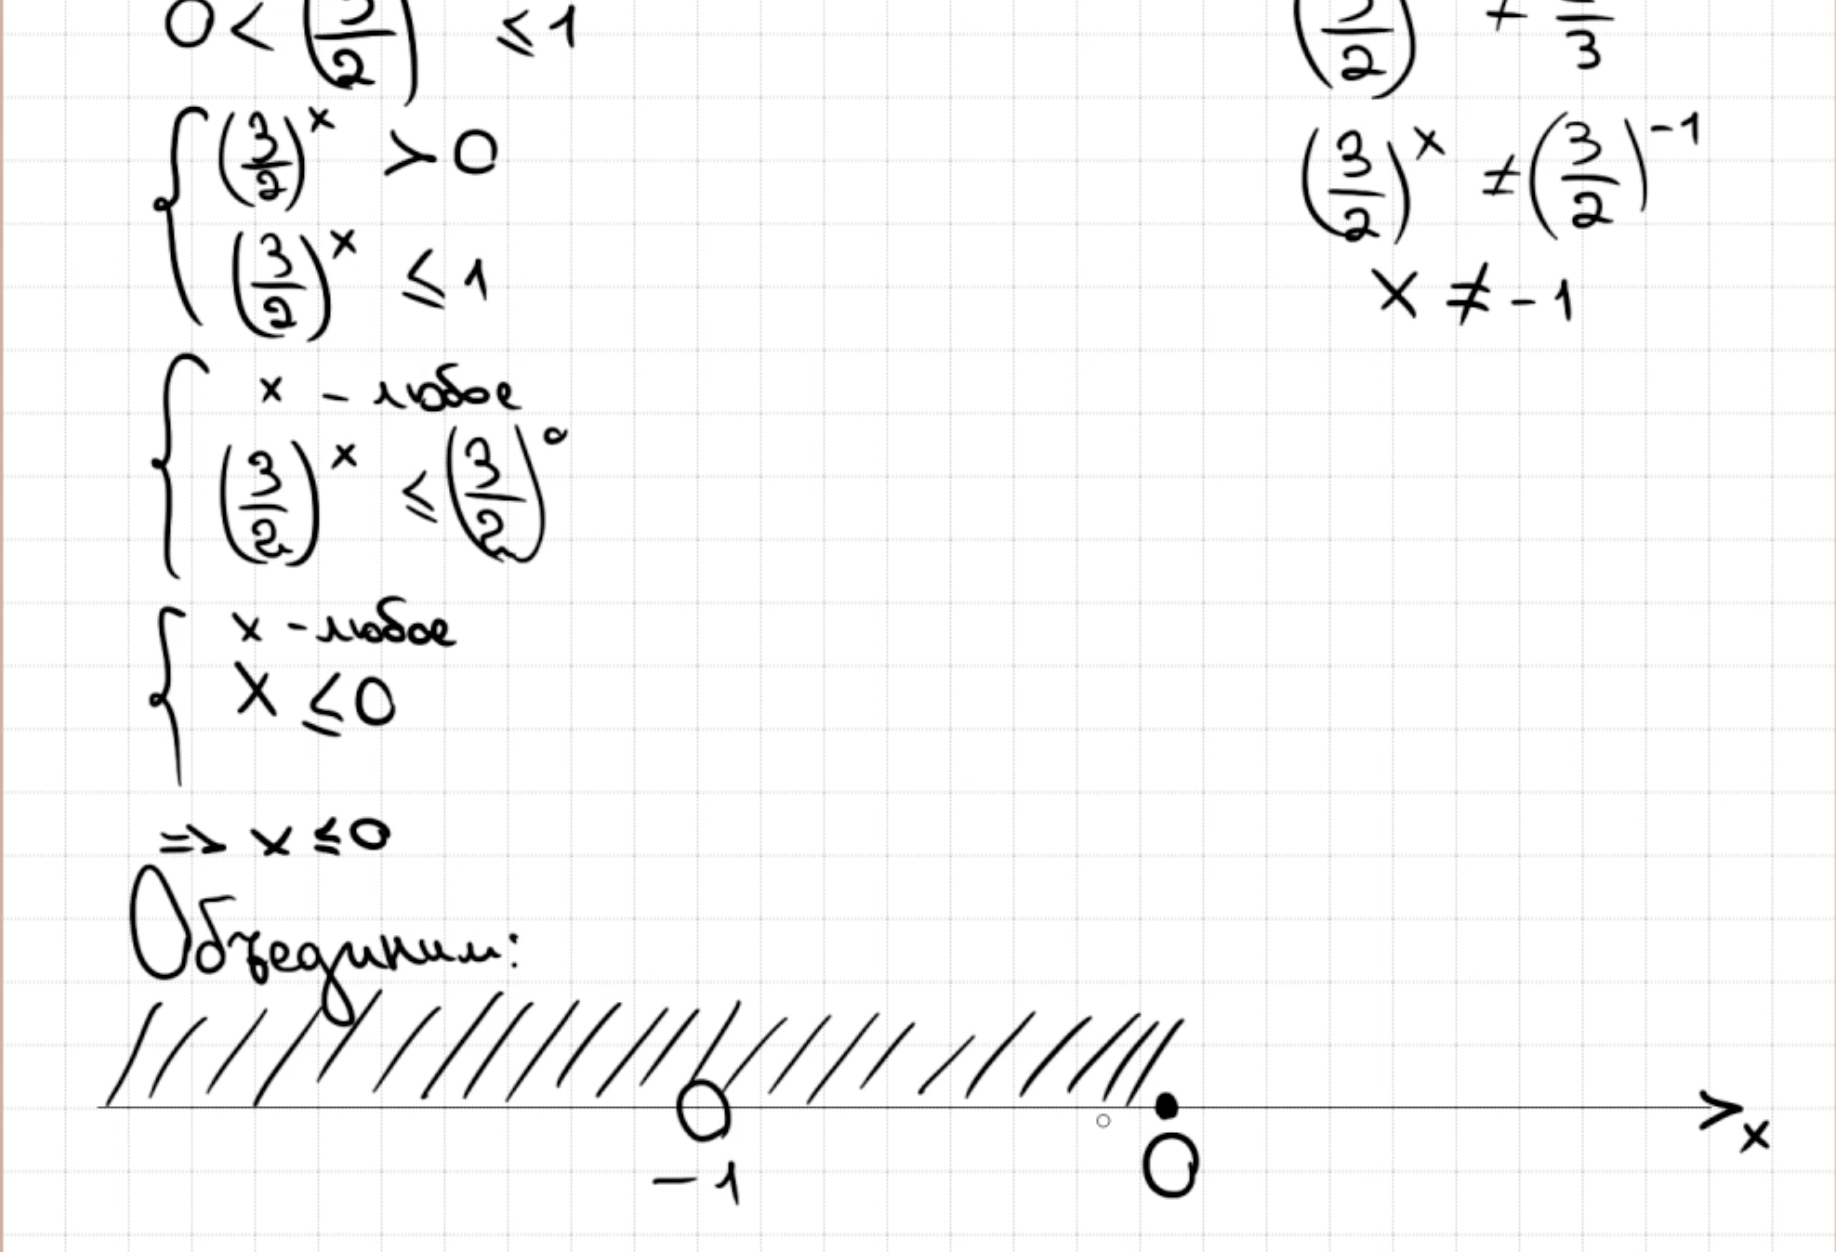 0 < (3/2) ≤ 1
(3/2)^x > 0
(3/2)^x ≤ 1
x - любое
(3/2)^x ≤ (3/2)^0
x - любое
x ≤ 0
=> x ≤ 0
Объединим:
-1
0
x
(3/2) ≠ 3
(3/2)^x ≠ (3/2)^-1
x ≠ -1